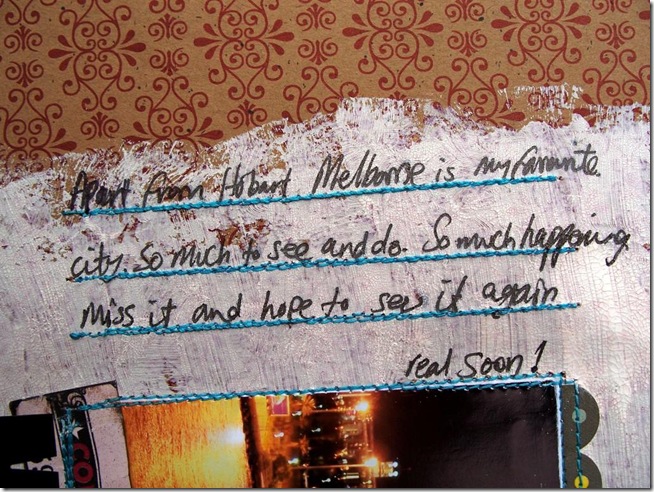 Apart from Hobart Melbourne is my favourite.
city. So much to see and do. So much happening
Miss it and hope to see it again
real soon!
CO